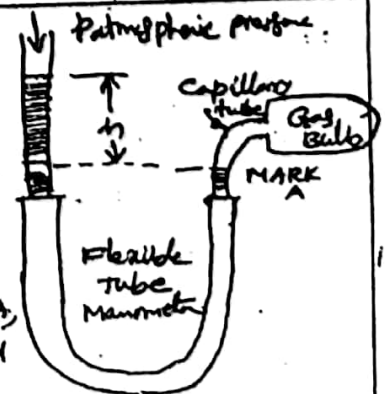 Patmospheric pressure
Capillary
tube
Gas
Bulb
h
MARK
A
Flexible
Tube
Manometer